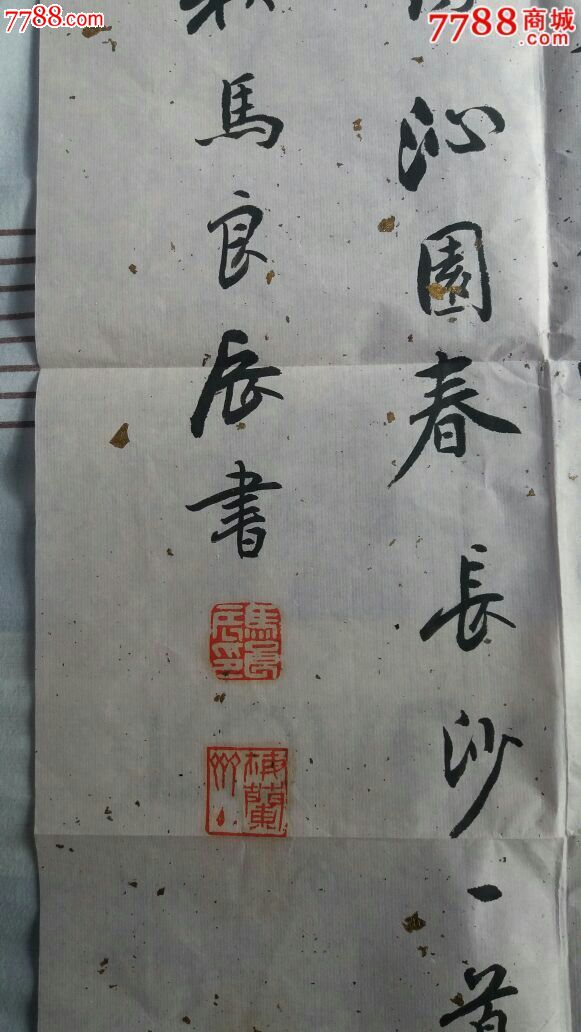 7788.com
7788商城
com
沁園春長沙一首
馬良辰書
馬良辰印